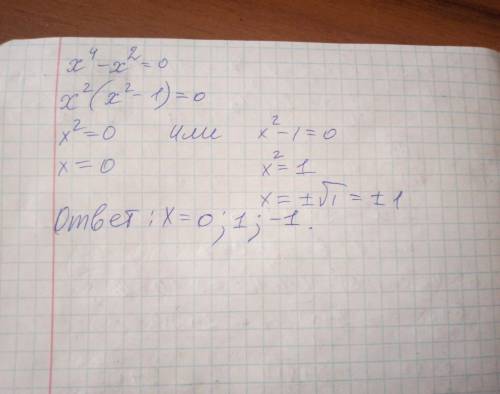 x⁴-x²=0
x²(x²-1)=0
x²=0 или x²-1=0
x=0 x²=1
x=±√1=±1
Ответ: x=0; 1; -1.